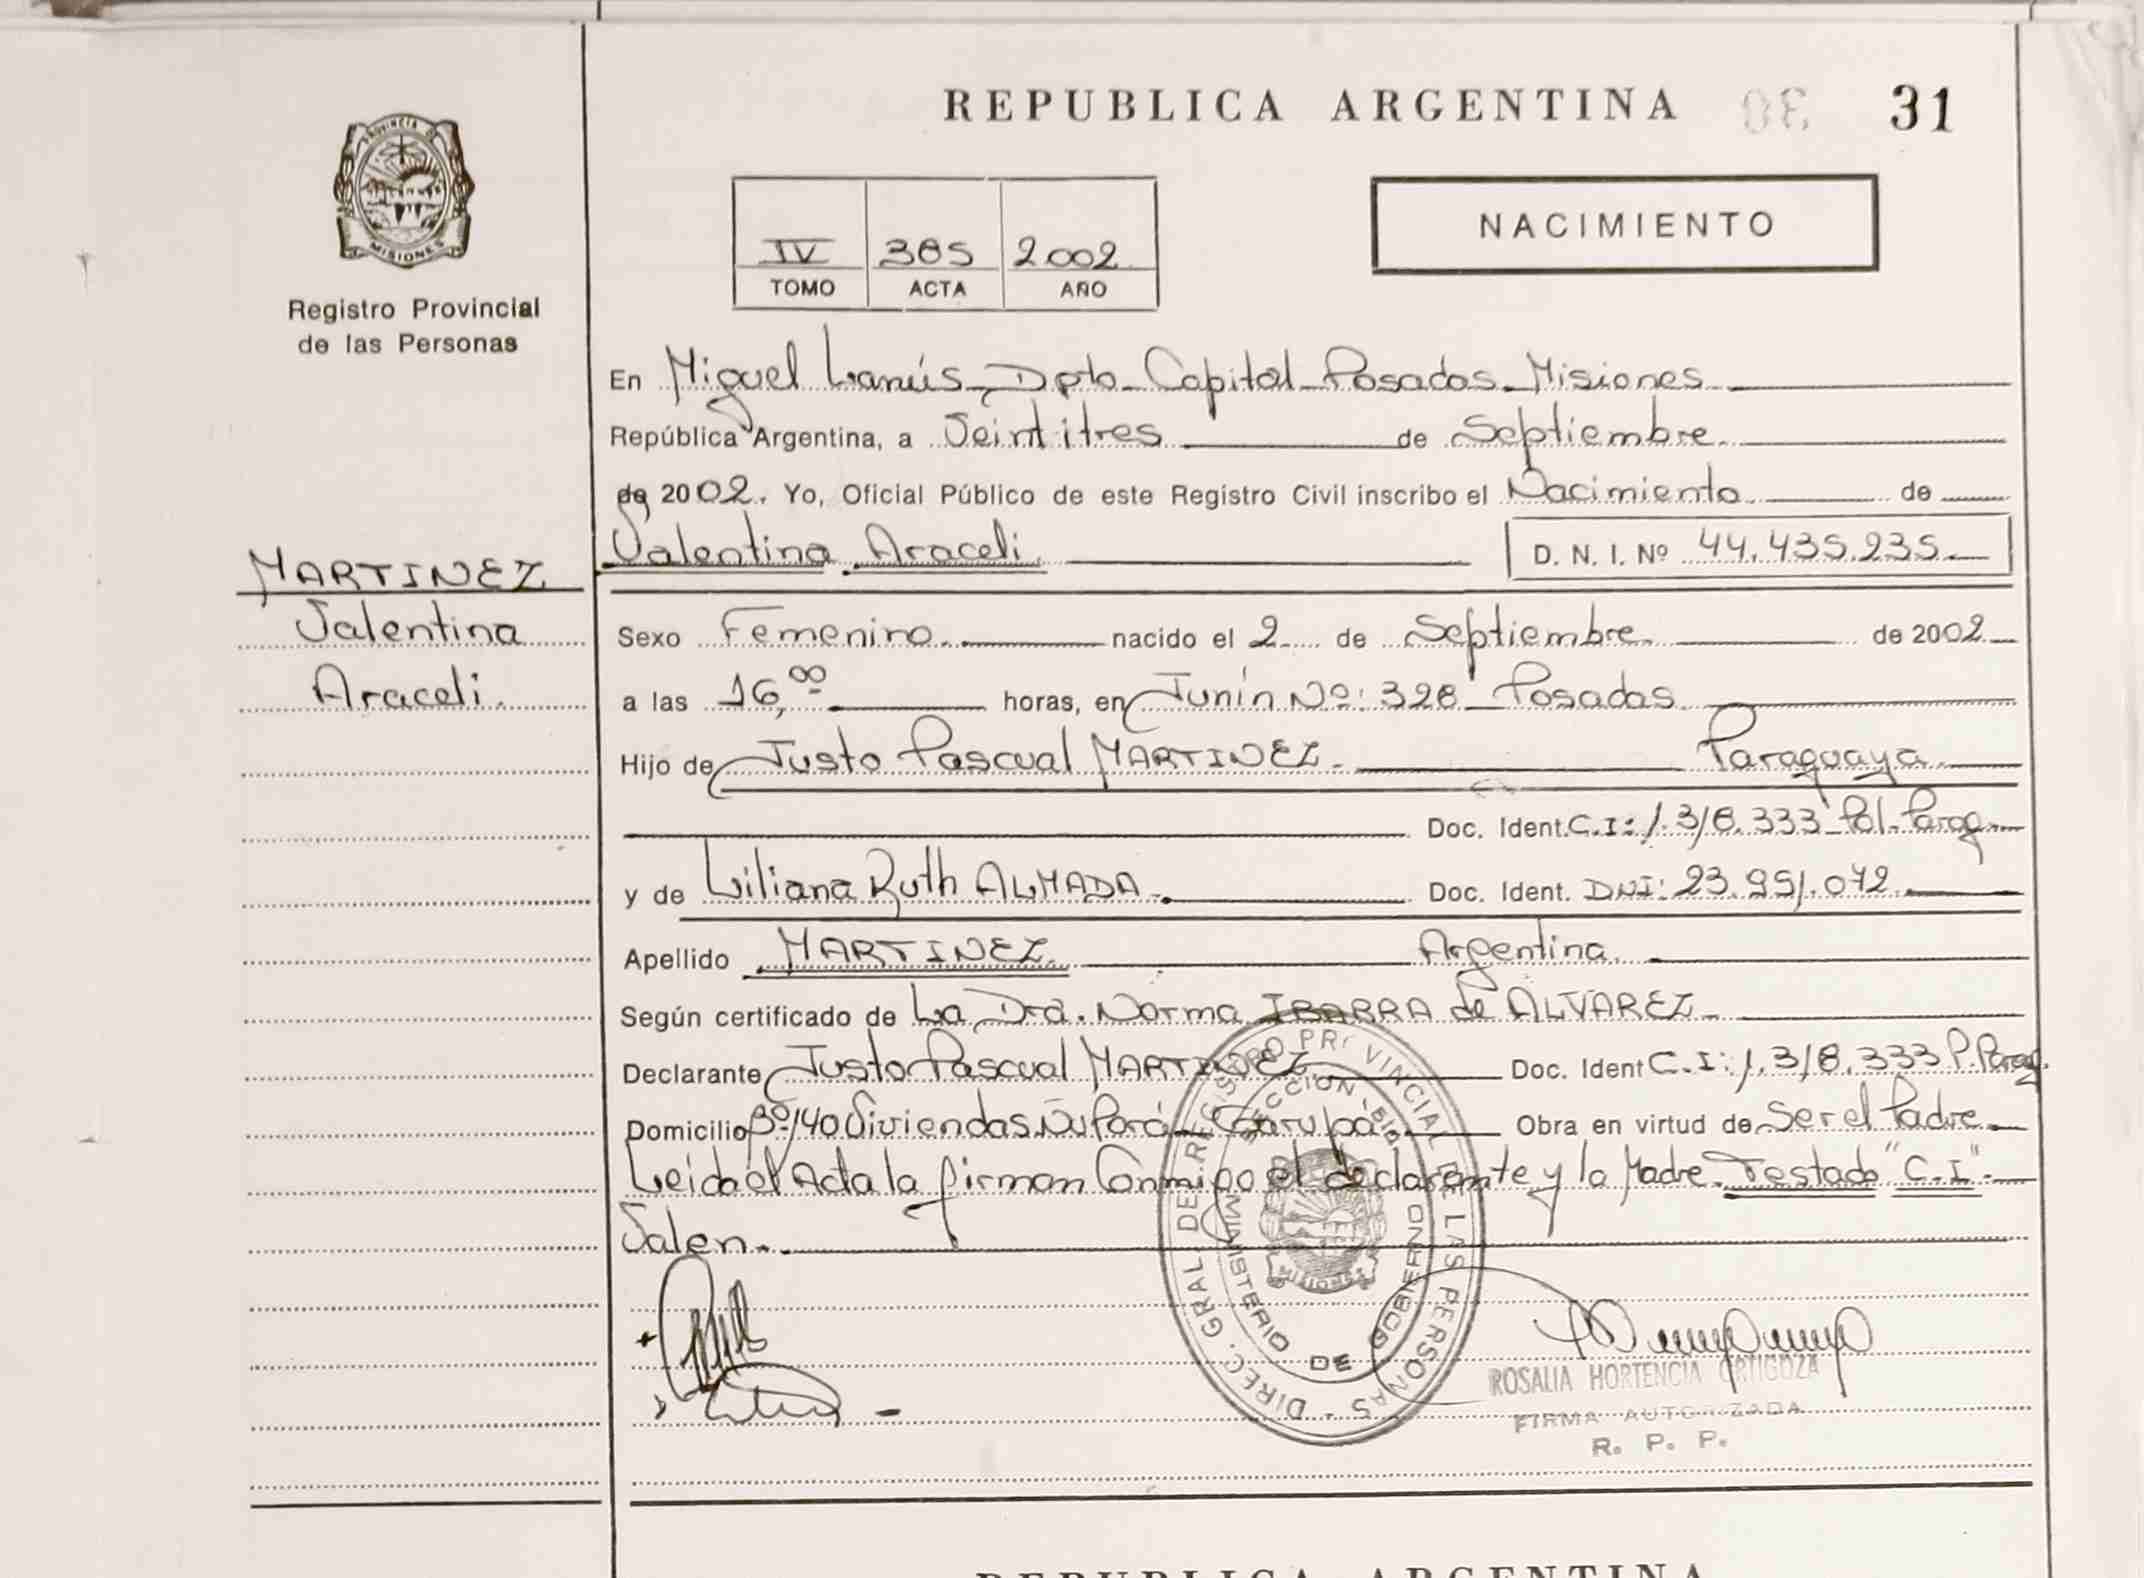 REPUBLICA ARGENTINA 30 31
PROVINCIA DE
MISIONES
Registro Provincial
de las Personas
NACIMIENTO
IV 385 2002
TOMO ACTA AÑO
En Miguel Lanús Dpto Capital Posadas Misiones
República Argentina, a Veintitres de Septiembre
de 2002. Yo, Oficial Público de este Registro Civil inscribo el Nacimiento de
Valentina Araceli. D. N. I. Nº 44.435.235
MARTINEZ
Valentina
Araceli.
Sexo Femenino. nacido el 2 de Septiembre de 2002
a las 16,00 horas, en Junín Nº: 328 Posadas
Hijo de Justo Pascual MARTINEZ. Paraguaya
Doc. Ident. C.I: 1.318.333 Pol. Parag
y de Liliana Ruth ALMADA. Doc. Ident. DNI: 23.951.072.
Apellido MARTINEZ. Argentina.
Según certificado de La Dra. Norma IBARRA de ALVAREZ
Declarante Justo Pascual MARTINEZ Doc. Ident C.I: 1.318.333 P. Parag.
Domicilio Bº 140 Viviendas Ñu Porá Garupá. Obra en virtud de Ser el Padre
Leida el Acta la firman Conmigo el declarante y la Madre. Testado "C.I".
Valen.
DIREC. GRAL. DE REGISTRO PROVINCIAL DE LAS PERSONAS
MINISTERIO DE GOBIERNO
MISIONES
ROSALIA HORTENCIA ORTIGOZA
FIRMA AUTORIZADA
R. P. P.
REPUBLICA ARGENTINA